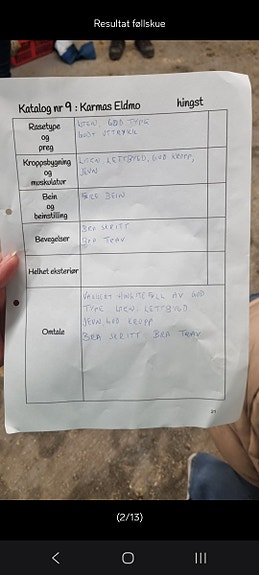 Resultat føllskue
Katalog nr 9 : Karmas Eldmo hingst
Rasetype
og
preg
LITEN, GOD TYPE
GODT UTTRYKK
Kroppsbygning
og
muskulatur
LITEN LETTBYGD, GOD KROPP,
JEVN
Bein
og
beinstilling
BEIN
Bevegelser
BRA SKRITT
BRA TRAV
Helhet eksteriør
Omtale
VAKKERT HINGSTEFØLL AV GOD
TYPE. LITEN. LETTBYGD
JEVN GOD KROPP
BRA SKRITT, BRA TRAV
(2/13)